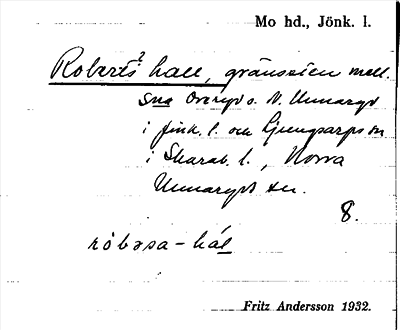 Mo hd., Jönk. l.
Roberts? hall, gränssten mell.
sna Öreryd o. N. Unnaryd
i Jönk. l. och Ljungsarps sn
i Skarab. l., Norra
Unnaryds sn.
8.
róbəsa-hál
Fritz Andersson 1932.